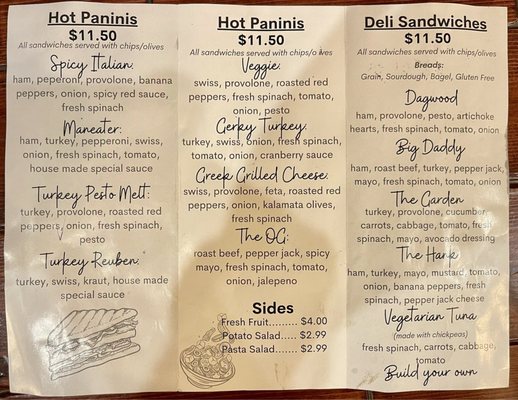 Hot Paninis
$11.50
All sandwiches served with chips/olives
Spicy Italian:
ham, peperoni, provolone, banana
peppers, onion, spicy red sauce,
fresh spinach
Maneater:
ham, turkey, pepperoni, swiss,
onion, fresh spinach, tomato,
house made special sauce
Turkey Pesto Melt:
turkey, provolone, roasted red
peppers, onion, fresh spinach,
pesto
Turkey Reuben:
turkey, swiss, kraut, house made
special sauce
Hot Paninis
$11.50
All sandwiches served with chips/olives
Veggie:
swiss, provolone, roasted red
peppers, fresh spinach, tomato,
onion, pesto
Gerky Turkey:
turkey, swiss, onion, fresh spinach,
tomato, onion, cranberry sauce
Greek Grilled Cheese:
swiss, provolone, feta, roasted red
peppers, onion, kalamata olives,
fresh spinach
The OG:
roast beef, pepper jack, spicy
mayo, fresh spinach, tomato,
onion, jalepeno
Sides
Fresh Fruit......... $4.00
Potato Salad..... $2.99
Pasta Salad....... $2.99
Deli Sandwiches
$11.50
All sandwiches served with chips/olives
Breads:
Grain, Sourdough, Bagel, Gluten Free
Dagwood
ham, provolone, pesto, artichoke
hearts, fresh spinach, tomato, onion
Big Daddy
ham, roast beef, turkey, pepper jack,
mayo, fresh spinach, tomato, onion
The Garden
turkey, provolone, cucumber
carrots, cabbage, tomato, fresh
spinach, mayo, avocado dressing
The Hank
ham, turkey, mayo, mustard, tomato,
onion, banana peppers, fresh
spinach, pepper jack cheese
Vegetarian Tuna
(made with chickpeas)
fresh spinach, carrots, cabbage,
tomato
Build your own